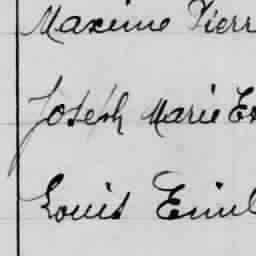 Maxime Pierr
Joseph Marie Ex
Louis Emil